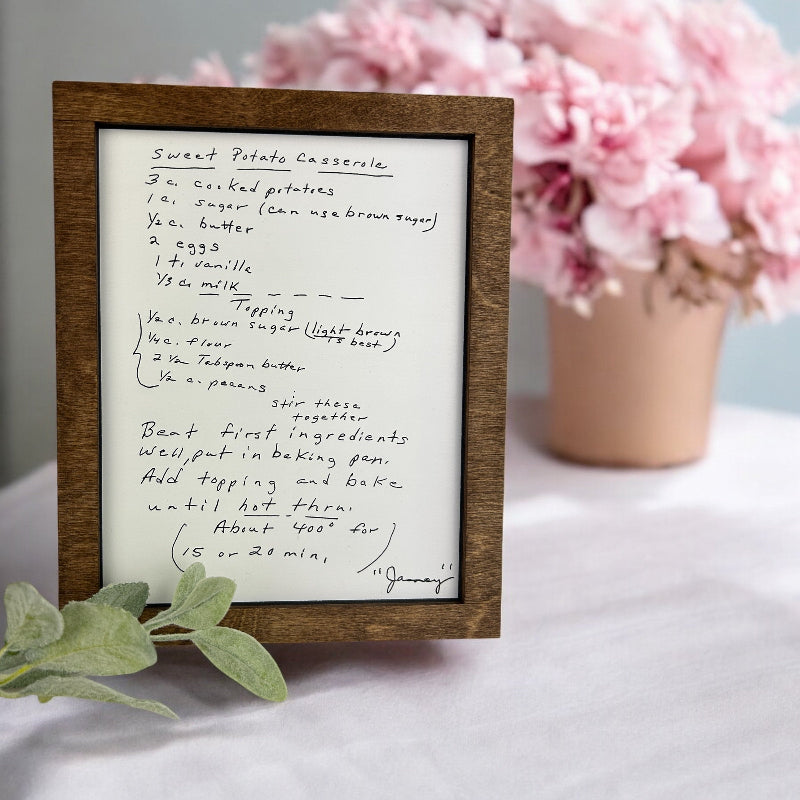 Sweet Potato Casserole
3 c. cooked potatoes
1 c. sugar (can use brown sugar)
½ c. butter
2 eggs
1 t. vanilla
⅓ c. milk
Topping
½ c. brown sugar (light brown
is best)
¼ c. flour
2 ½ Tabspoon butter
½ c. pecans
stir these
together
Beat first ingredients
well, put in baking pan.
Add topping and bake
until hot - thru.
(About 400° for
15 or 20 min.)